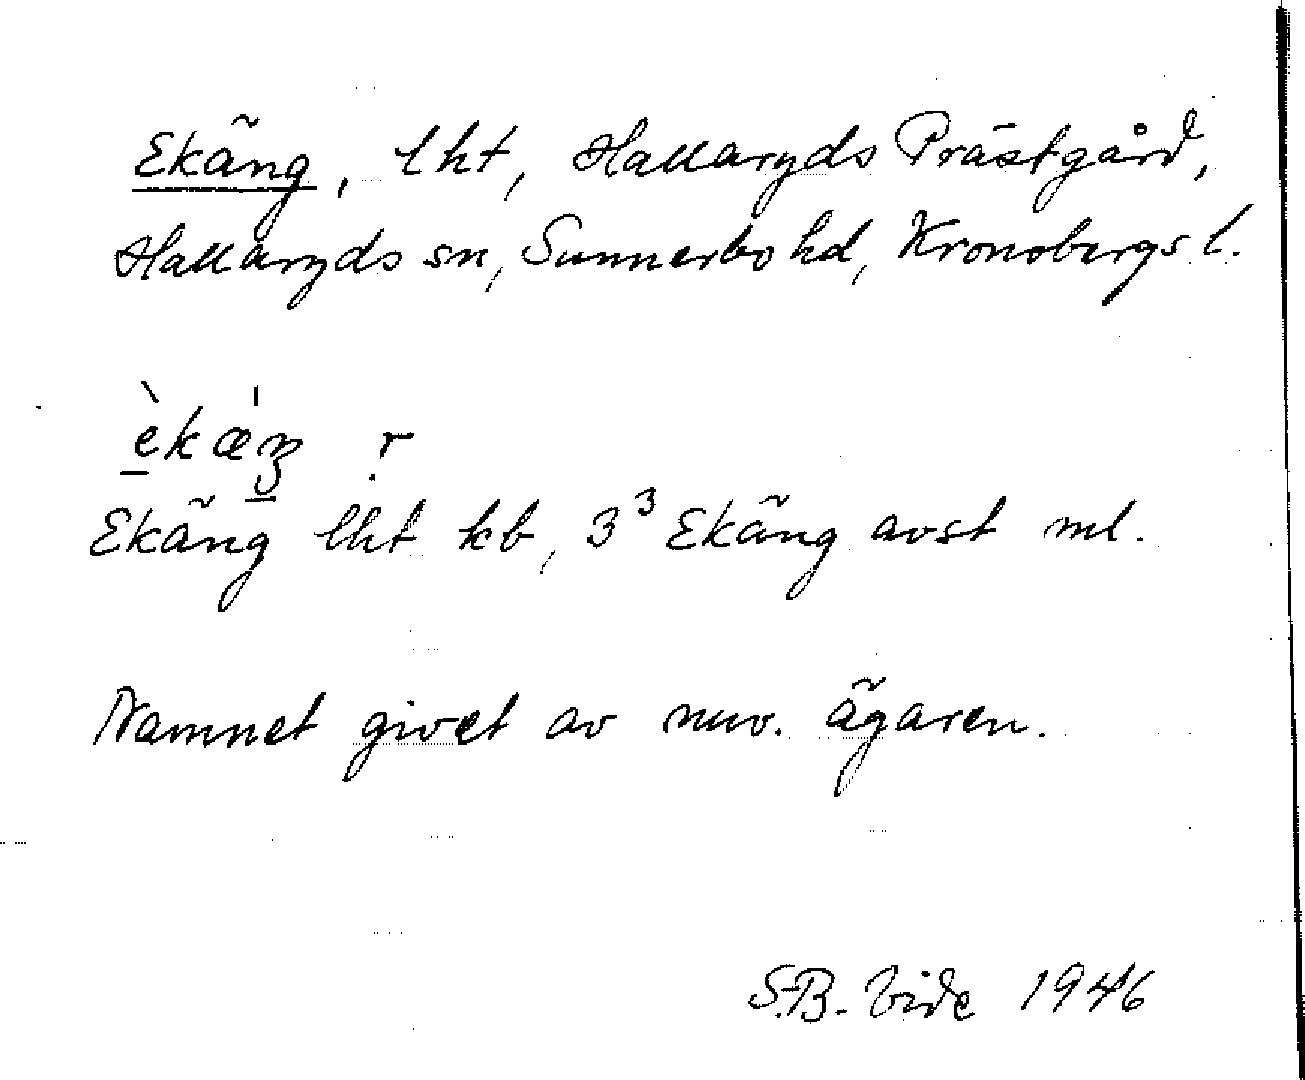 Ekäng, lht, Hallaryds Prästgård,
Hallaryds sn, Sunnerbo hd, Kronobergs l.
èkæ'ŋ ṛ
Ekäng lht kb, 3³ Ekäng avst ml.
Namnet givet av nuv. ägaren.
S.-B. Vide 1946